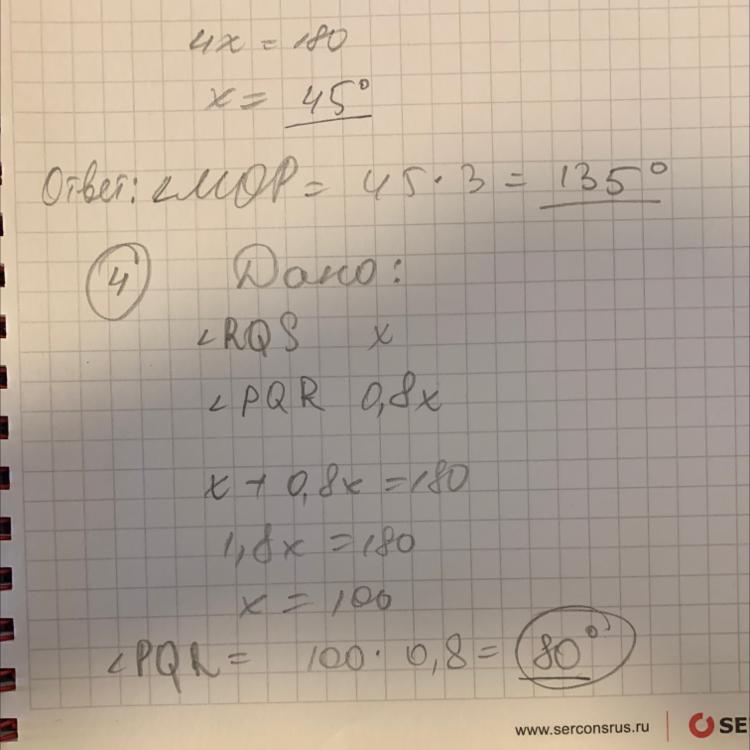 4x = 180
x = 45°
Ответ: ∠MOP = 45 · 3 = 135°
4 Дано:
∠RQS x
∠PQR 0,8x
x + 0,8x = 180
1,8x = 180
x = 100
∠PQR = 100 · 0,8 = 80°
www.serconsrus.ru SE